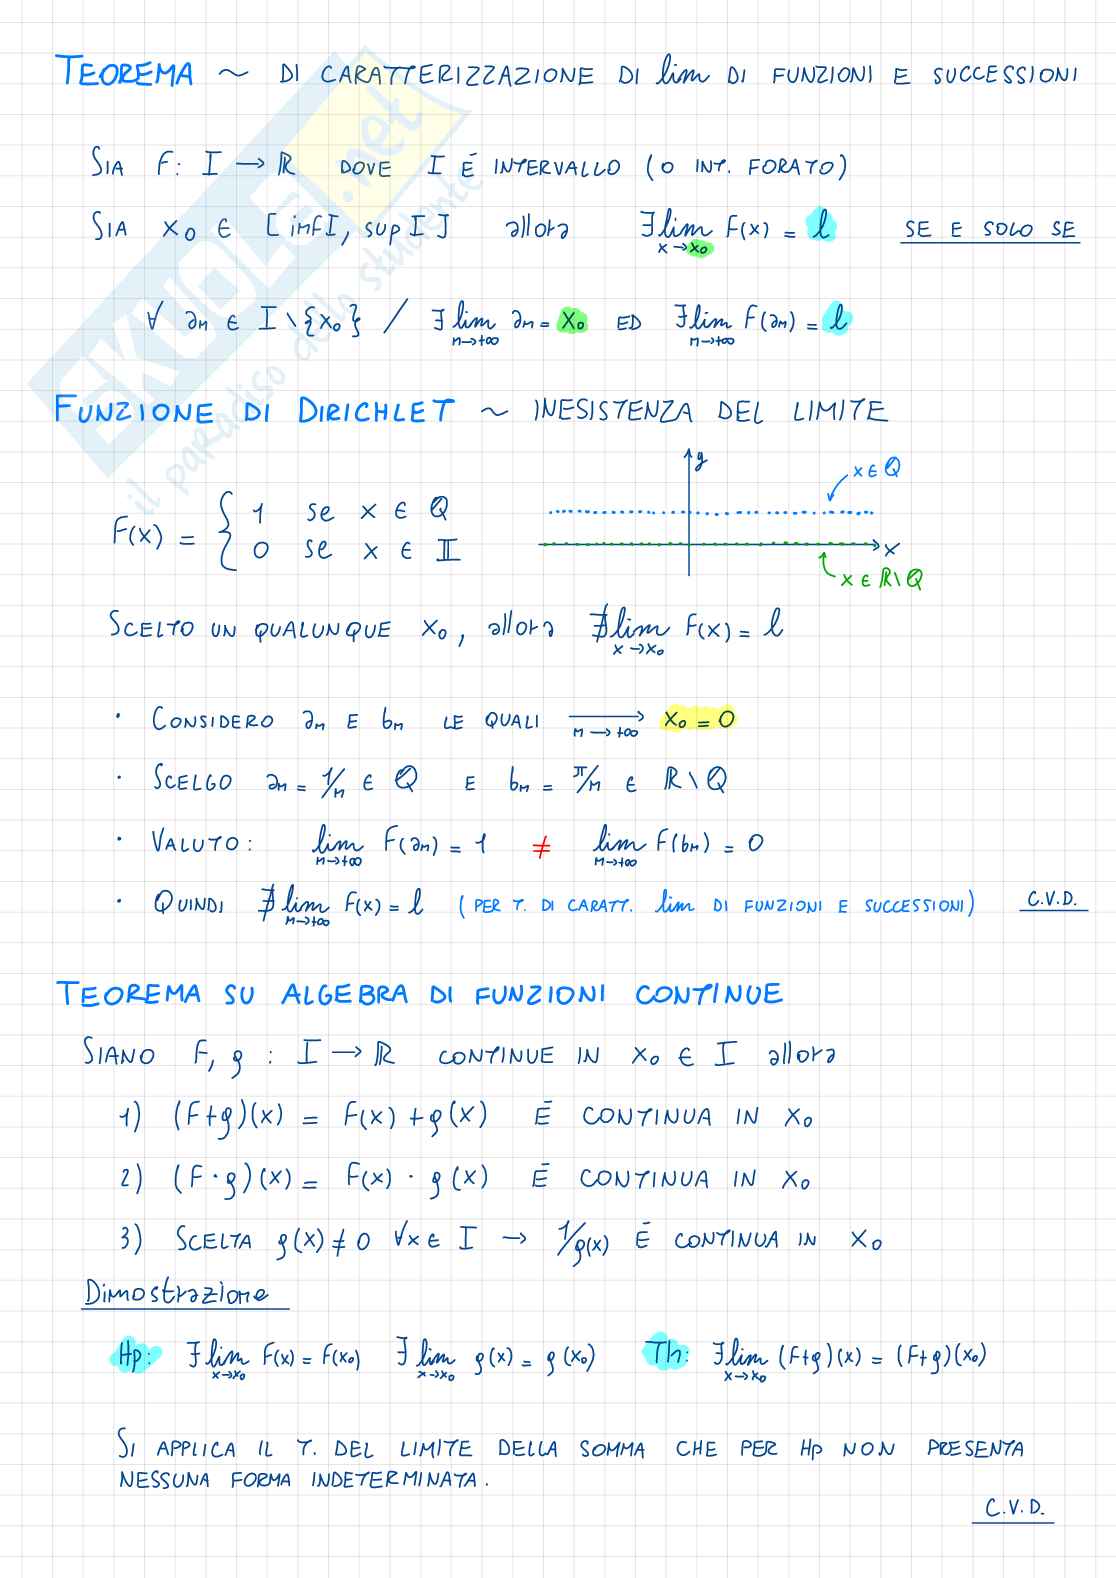 TEOREMA ~ DI CARATTERIZZAZIONE DI lim DI FUNZIONI E SUCCESSIONI
SIA F: I → ℝ DOVE I È INTERVALLO (O INT. FORATO)
SIA x₀ ∈ [inf I, sup I] allora ∃ lim x→x₀ F(x) = l SE E SOLO SE
∀ an ∈ I \ {x₀} / ∃ lim n→+∞ an = x₀ ED ∃ lim n→+∞ F(an) = l
FUNZIONE DI DIRICHLET ~ INESISTENZA DEL LIMITE
F(x) = { 1 se x ∈ ℚ
0 se x ∈ 𝕀
y
x ∈ ℚ
x
x ∈ ℝ\ℚ
SCELTO UN QUALUNQUE x₀, allora ∄ lim x→x₀ F(x) = l
· CONSIDERO an E bn LE QUALI → n→+∞ x₀ = 0
· SCELGO an = 1/n ∈ ℚ E bn = π/n ∈ ℝ \ ℚ
· VALUTO: lim n→+∞ F(an) = 1 ≠ lim n→+∞ F(bn) = 0
· QUINDI ∄ lim n→+∞ F(x) = l (PER T. DI CARATT. lim DI FUNZIONI E SUCCESSIONI) C.V.D.
TEOREMA SU ALGEBRA DI FUNZIONI CONTINUE
SIANO F, g : I → ℝ CONTINUE IN x₀ ∈ I allora
1) (F+g)(x) = F(x) + g(x) È CONTINUA IN x₀
2) (F·g)(x) = F(x) · g(x) È CONTINUA IN x₀
3) SCELTA g(x) ≠ 0 ∀x ∈ I → 1/g(x) È CONTINUA IN x₀
Dimostrazione
Hp: ∃ lim x→x₀ F(x) = F(x₀) ∃ lim x→x₀ g(x) = g(x₀) Th: ∃ lim x→x₀ (F+g)(x) = (F+g)(x₀)
SI APPLICA IL T. DEL LIMITE DELLA SOMMA CHE PER Hp NON PRESENTA
NESSUNA FORMA INDETERMINATA.
C.V.D.
SKUOLA.net
il paradiso dello studente